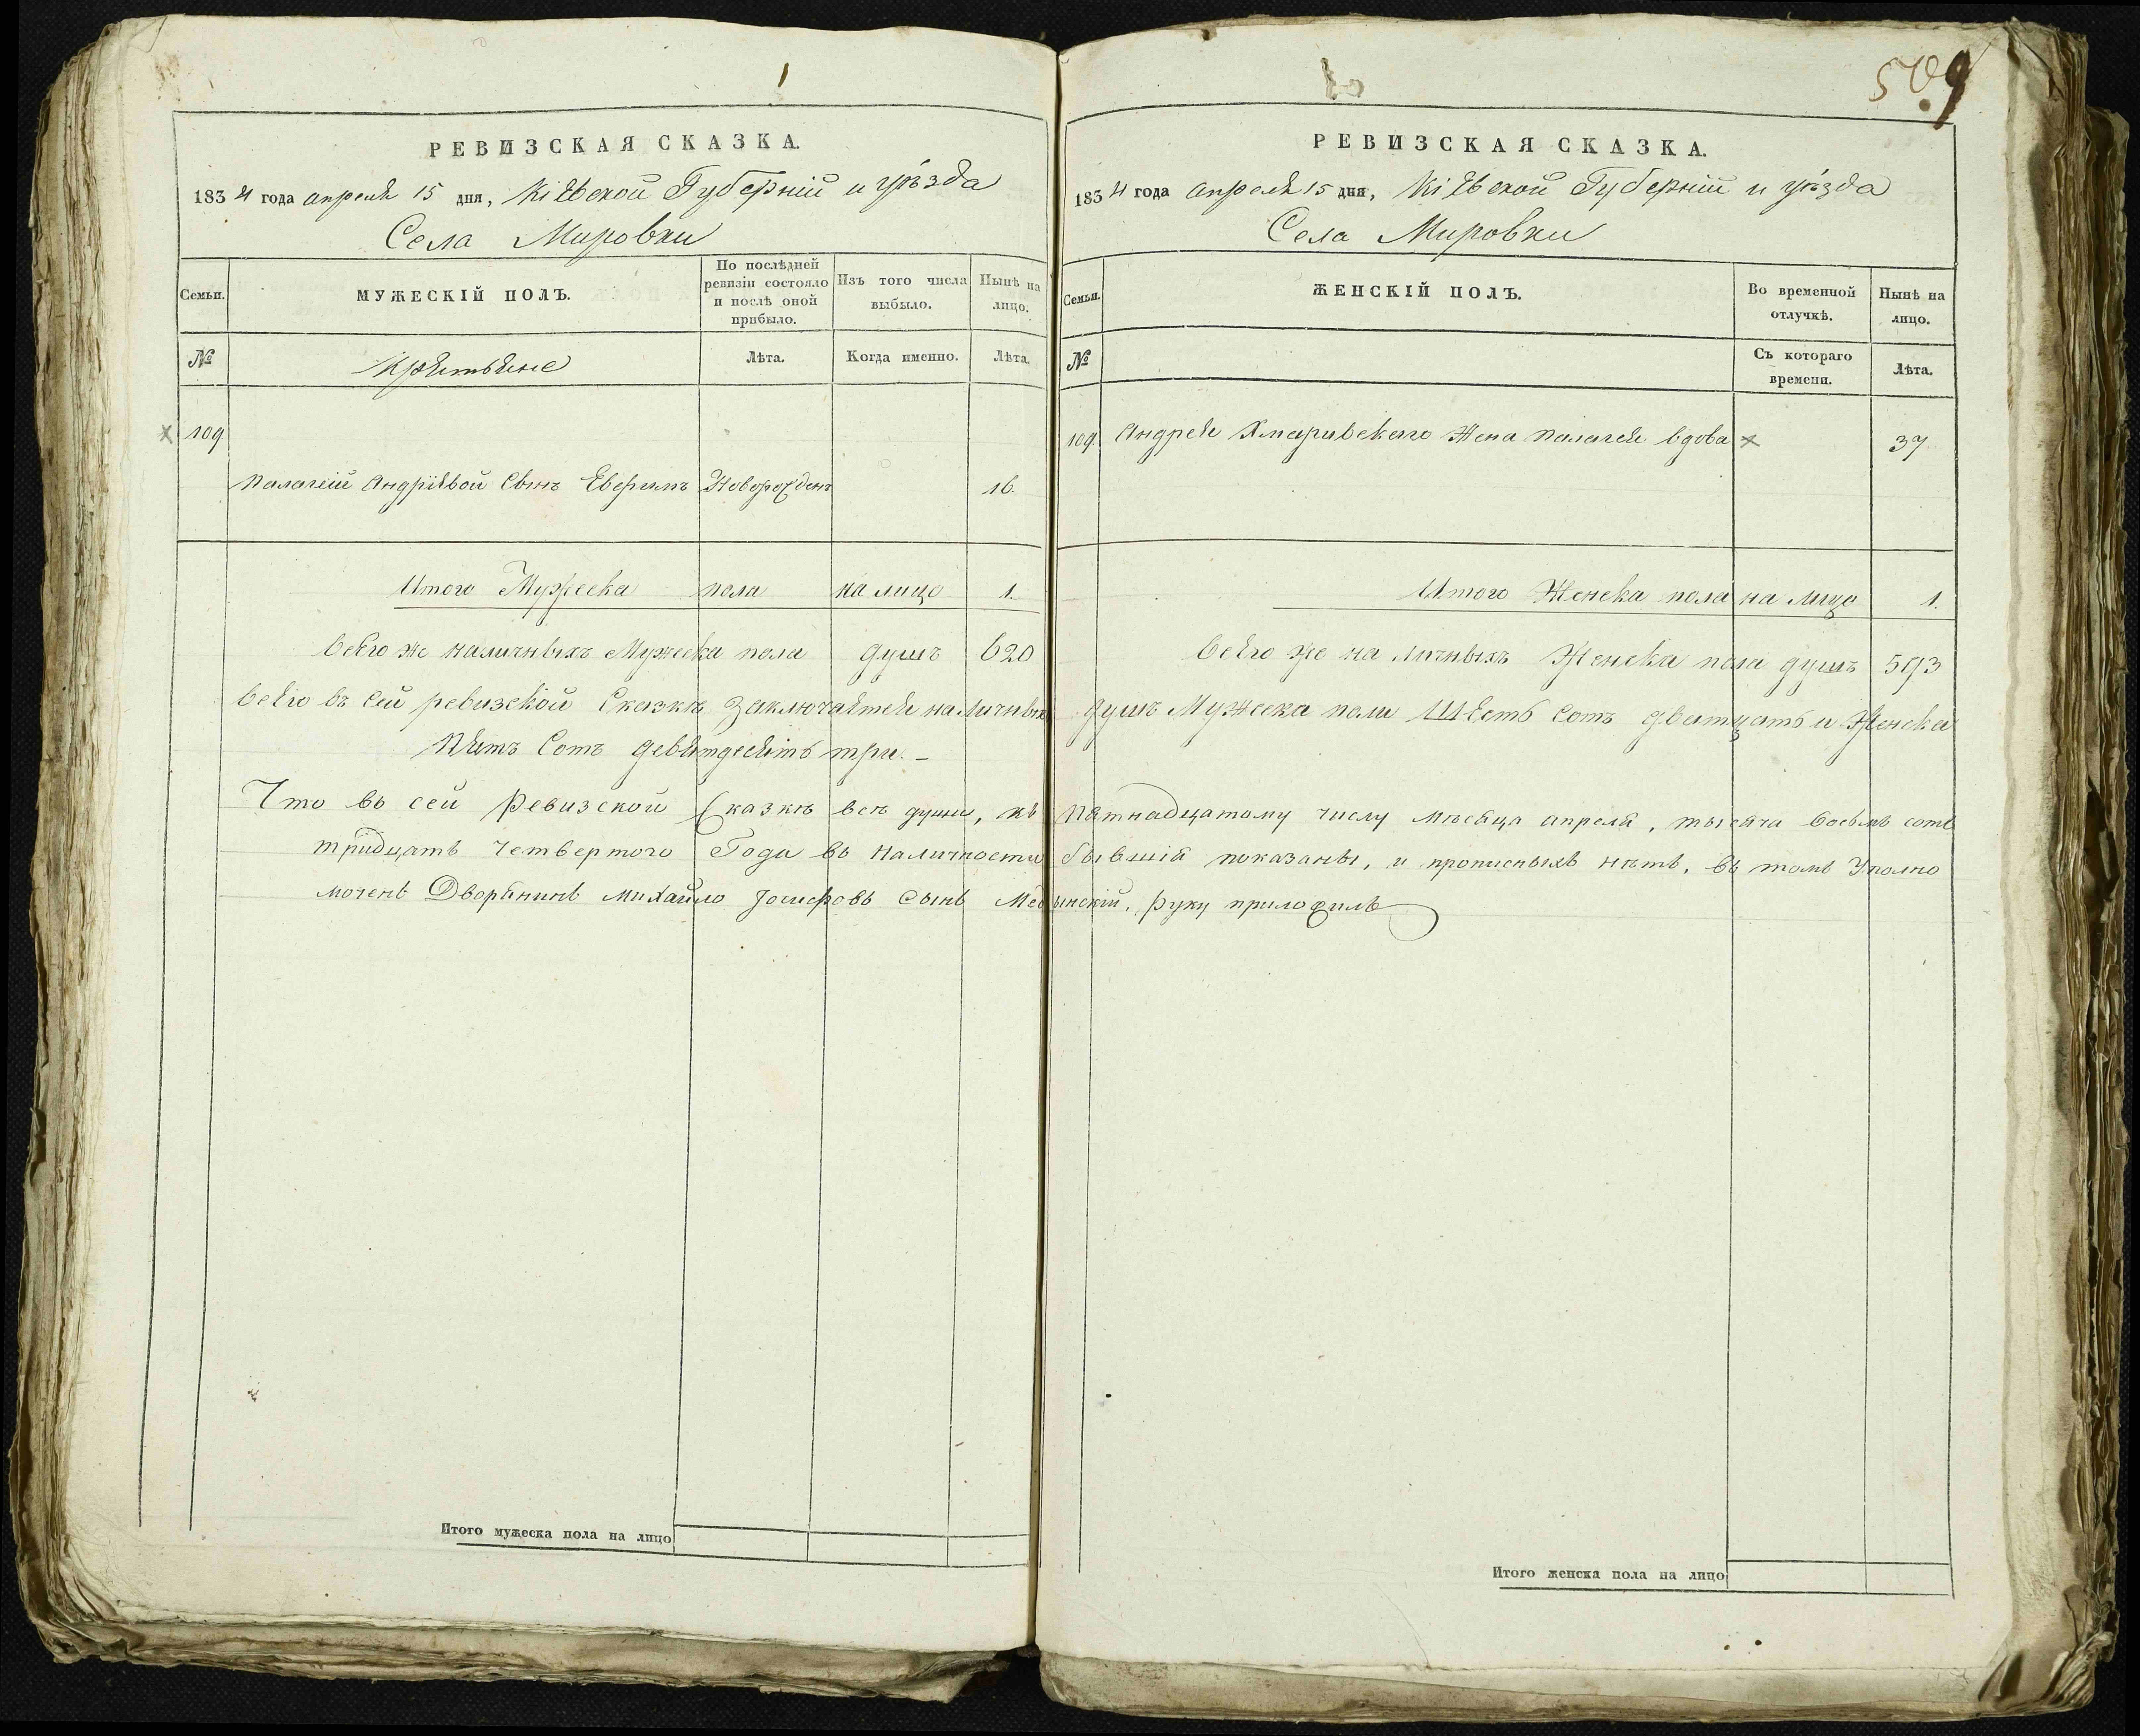 1
РЕВИЗСКАЯ СКАЗКА.
1834 года апреля 15 дня, Кіевской Губерніи и уѣзда
Села Мировки
Семьи.
МУЖЕСКІЙ ПОЛЪ.
По послѣдней ревизіи состояло и послѣ оной прибыло.
Изъ того числа выбыло.
Нынѣ на лицо.
№
Крѣстьяне
Лѣта.
Когда именно.
Лѣта.
109.
Палагеіи Андріевой Сынъ Новорожденъ 16.
Итого Мужеска пола на лицо 1.
всего же наличныхъ Мужеска пола душъ 620
всего въ сей ревизской Сказкѣ заключается наличныхъ
пять Сотъ девятдесятъ три.
Что во сей Ревизской Сказкѣ всѣ души, къ
тридцать четвертого Года въ наличности
моченъ Дворянинъ Михайло Іосифовъ Сынъ
Итого мужеска пола на лицо
509
РЕВИЗСКАЯ СКАЗКА.
1834 года апреля 15 дня, Кіевской Губерніи и уѣзда
Села Мировки
Семьи.
ЖЕНСКІЙ ПОЛЪ.
Во временной отлучкѣ.
Нынѣ на лицо.
№
Съ котораго времени.
Лѣта.
109. Андрея Жена Палагея вдова 37
Итого Женска пола на лицо 1.
всего же наличныхъ Женска пола душъ 593
душъ Мужеска пола Шесть Сотъ дватцать и Женска
пятнадцатому числу мѣсяца апреля, тысяча восемъ сотъ
бывшія показаны, и прописныхъ нѣтъ, въ томъ Уполно
руку приложилъ
Итого женска пола на лицо